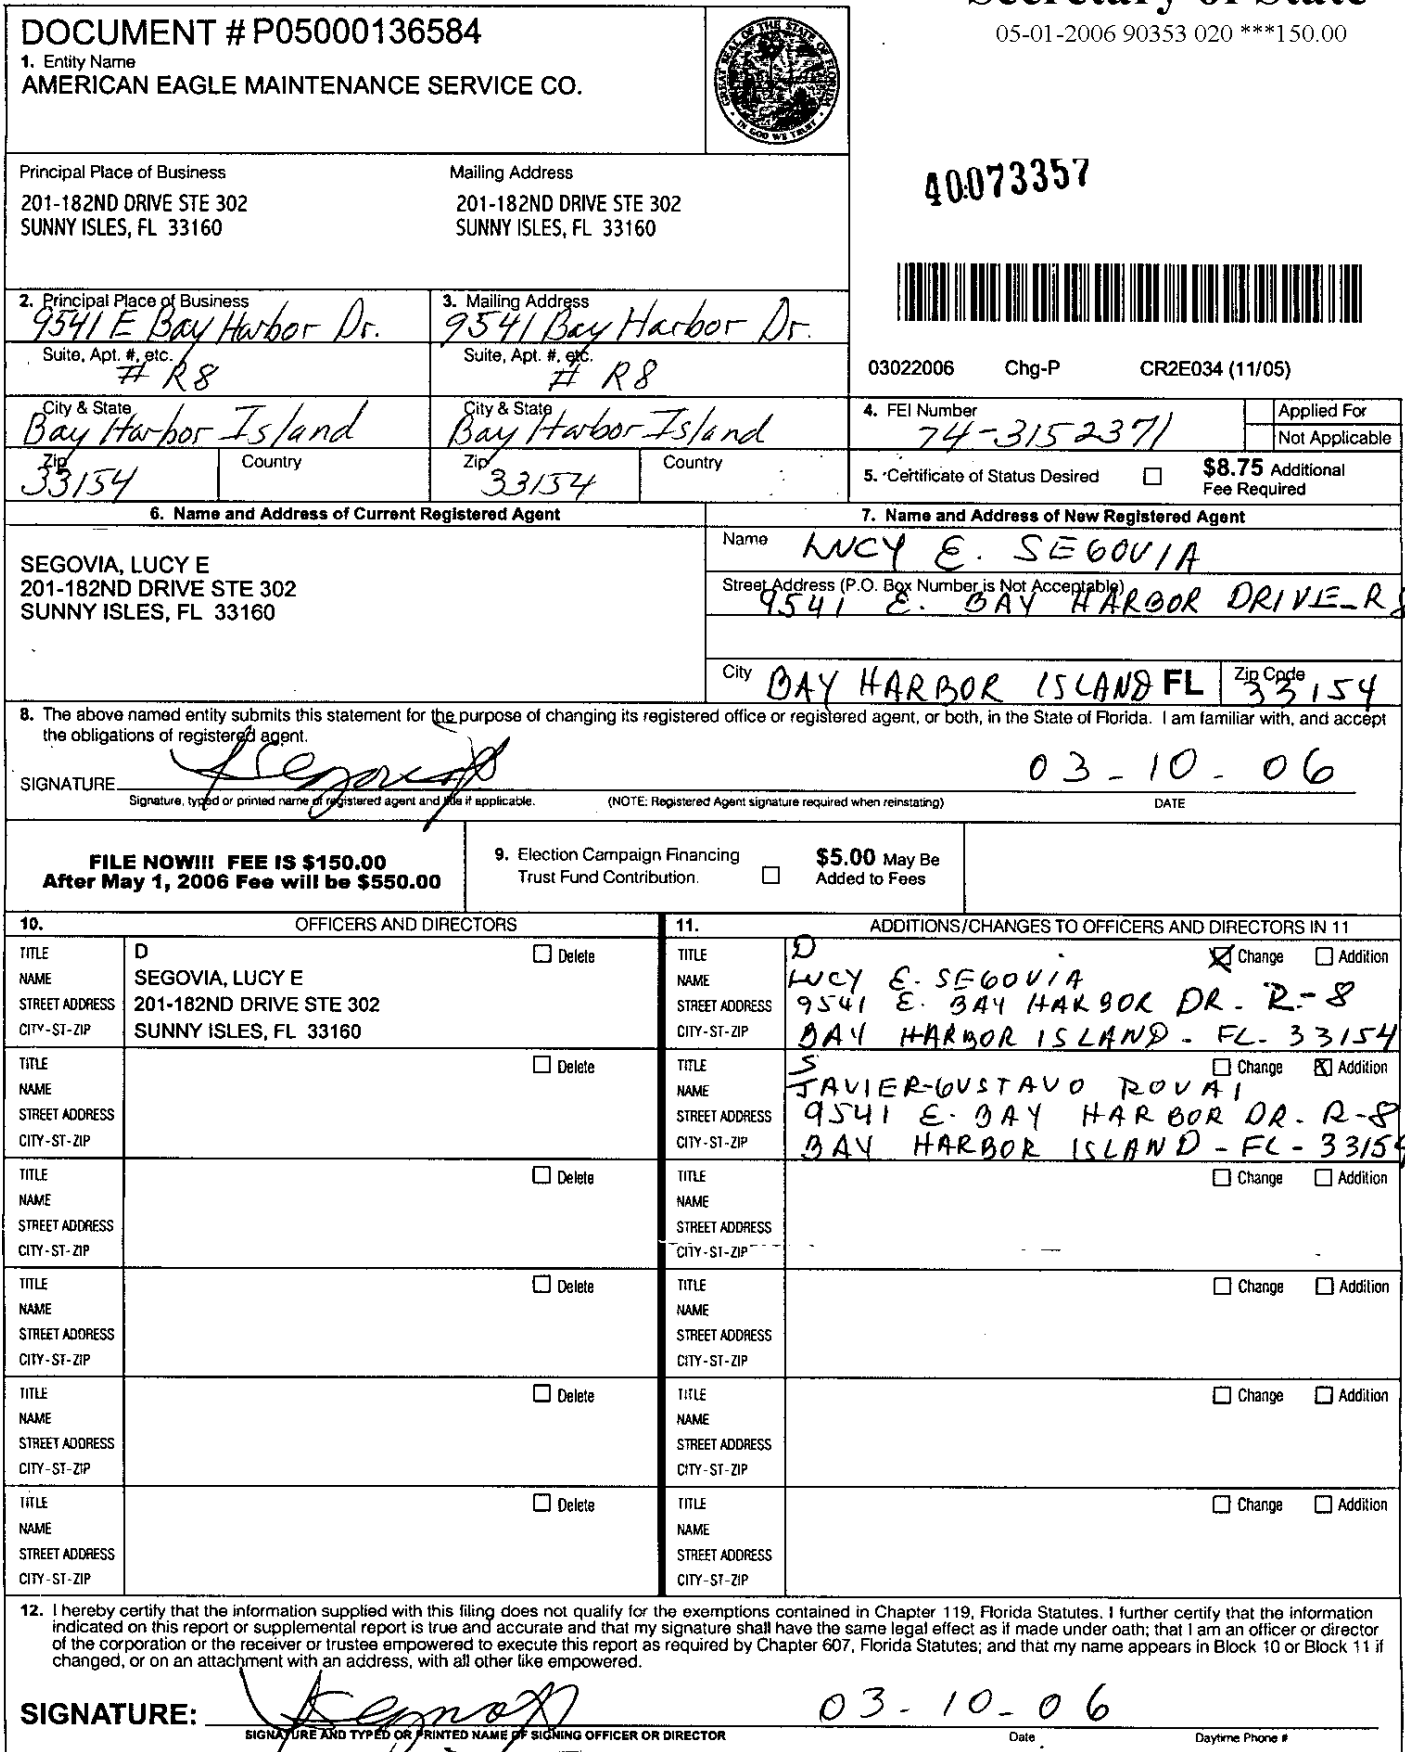 Secretary of State
05-01-2006 90353 020 ***150.00
DOCUMENT # P05000136584
1. Entity Name
AMERICAN EAGLE MAINTENANCE SERVICE CO.
GREAT SEAL OF THE STATE OF FLORIDA
IN GOD WE TRUST
Principal Place of Business
201-182ND DRIVE STE 302
SUNNY ISLES, FL 33160
Mailing Address
201-182ND DRIVE STE 302
SUNNY ISLES, FL 33160
40073357
03022006 Chg-P CR2E034 (11/05)
2. Principal Place of Business
9541 E Bay Harbor Dr.
Suite, Apt. #, etc.
# R8
City & State
Bay Harbor Island
Zip
33154
Country
3. Mailing Address
9541 Bay Harbor Dr.
Suite, Apt. #, etc.
# R8
City & State
Bay Harbor Island
Zip
33154
Country
4. FEI Number
74-3152371
Applied For
Not Applicable
5. Certificate of Status Desired
$8.75 Additional
Fee Required
6. Name and Address of Current Registered Agent
SEGOVIA, LUCY E
201-182ND DRIVE STE 302
SUNNY ISLES, FL 33160
7. Name and Address of New Registered Agent
Name LUCY E. SEGOVIA
Street Address (P.O. Box Number is Not Acceptable)
9541 E. BAY HARBOR DRIVE-R8
City BAY HARBOR ISLAND FL Zip Code 33154
8. The above named entity submits this statement for the purpose of changing its registered office or registered agent, or both, in the State of Florida. I am familiar with, and accept
the obligations of registered agent.
SIGNATURE 03-10-06
Signature, typed or printed name of registered agent and title if applicable. (NOTE: Registered Agent signature required when reinstating) DATE
FILE NOW!!! FEE IS $150.00
After May 1, 2006 Fee will be $550.00
9. Election Campaign Financing
Trust Fund Contribution.
$5.00 May Be
Added to Fees
10. OFFICERS AND DIRECTORS
TITLE D Delete
NAME SEGOVIA, LUCY E
STREET ADDRESS 201-182ND DRIVE STE 302
CITY-ST-ZIP SUNNY ISLES, FL 33160
TITLE Delete
NAME
STREET ADDRESS
CITY-ST-ZIP
TITLE Delete
NAME
STREET ADDRESS
CITY-ST-ZIP
TITLE Delete
NAME
STREET ADDRESS
CITY-ST-ZIP
TITLE Delete
NAME
STREET ADDRESS
CITY-ST-ZIP
TITLE Delete
NAME
STREET ADDRESS
CITY-ST-ZIP
11. ADDITIONS/CHANGES TO OFFICERS AND DIRECTORS IN 11
TITLE D Change Addition
NAME LUCY E. SEGOVIA
STREET ADDRESS 9541 E. BAY HARBOR DR. R.-8
CITY-ST-ZIP BAY HARBOR ISLAND - FL- 33154
TITLE S Change Addition
NAME JAVIER-GUSTAVO ROVAI
STREET ADDRESS 9541 E. BAY HARBOR DR. R-8
CITY-ST-ZIP BAY HARBOR ISLAND - FL - 33154
TITLE Change Addition
NAME
STREET ADDRESS
CITY-ST-ZIP
TITLE Change Addition
NAME
STREET ADDRESS
CITY-ST-ZIP
TITLE Change Addition
NAME
STREET ADDRESS
CITY-ST-ZIP
TITLE Change Addition
NAME
STREET ADDRESS
CITY-ST-ZIP
12. I hereby certify that the information supplied with this filing does not qualify for the exemptions contained in Chapter 119, Florida Statutes. I further certify that the information
indicated on this report or supplemental report is true and accurate and that my signature shall have the same legal effect as if made under oath; that I am an officer or director
of the corporation or the receiver or trustee empowered to execute this report as required by Chapter 607, Florida Statutes; and that my name appears in Block 10 or Block 11 if
changed, or on an attachment with an address, with all other like empowered.
SIGNATURE: 03-10-06
SIGNATURE AND TYPED OR PRINTED NAME OF SIGNING OFFICER OR DIRECTOR Date Daytime Phone #